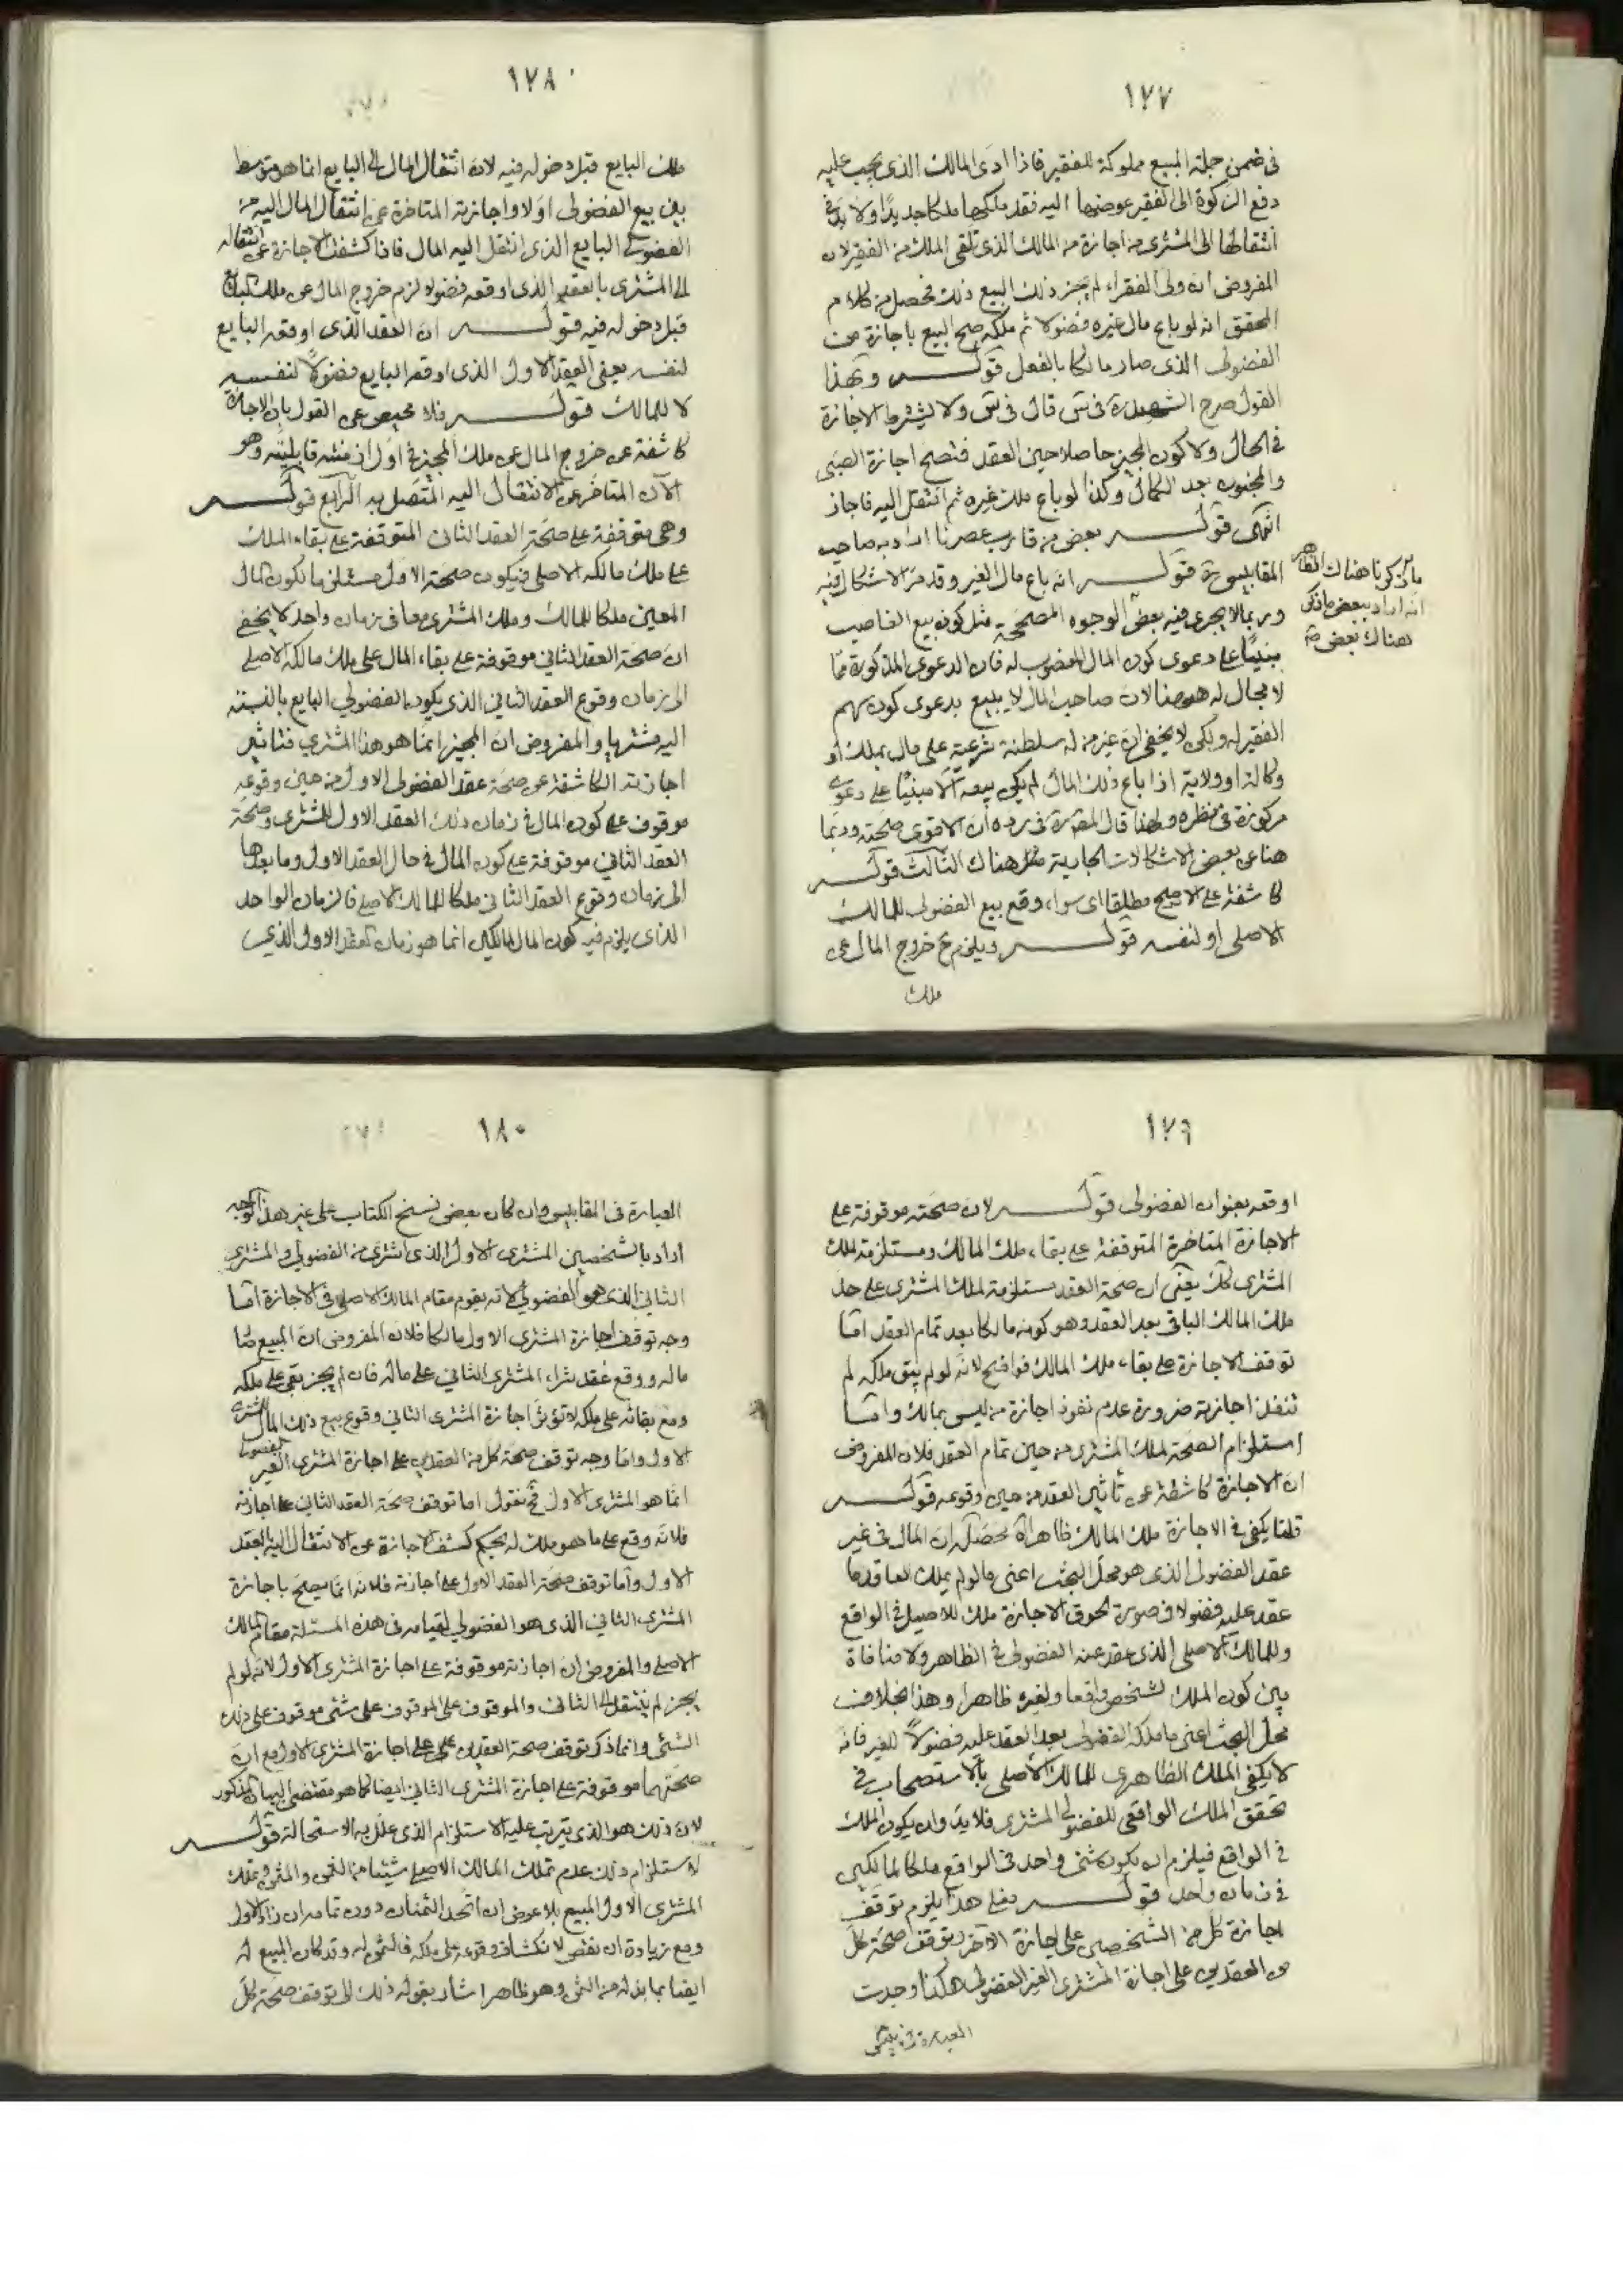 ١٧٧
في ضمن جملة المبيع مملوكة للفقير فاذا ادى المالك الذى يجب عليه
دفع الزكوة الى الفقير عوضها اليه فقد ملكها ملكا جديدا ولا بد في
انتقالها الى المشترى من اجازة من المالك الذى تلقى الملك من الفقير لان
المفروض ان ولى الفقراء لم يجز ذلك البيع ذلك فحصل من كلام
المحقق انه لو باع مال غيره فضولا ثم ملكه صح البيع باجازة من
الفضولى الذى صار مالكا بالفعل قوله وبهذا
القول صرح الشهيد ره في س قال في س ولا يشترط الاجازة
في الحال ولا كون المجيز حاصلا حين العقد فتصح اجازة الصبى
والمجنون بعد الكمال وكذا لو باع ملك غيره ثم انتقل اليه فاجاز
انتهى قوله بعض من قارب عصرنا اراد به صاحب
المقابيس ره قوله انه باع مال الغير وقد مر الاشكال فيه
وربما لا يجرى فيه بعض الوجوه المصححة مثل كون بيع الغاصب
مبنيا على دعوى كون المال المغصوب له فان الدعوى المذكورة مما
لا مجال له ههنا لان صاحب المال لا يبيع بدعوى كون سهم
الفقير له ولكن لا يخفى ان غير من له سلطنة شرعية على مال بملك او
وكالة او ولاية اذا باع ذلك المال لم يكن بيعه الا مبنيا على دعوى
مركوزة في نظره ولهذا قال المص ره في رده ان الاقوى صحته وربما
هنا عن بعض الاشكالات الجارية هناك الثالث قوله
كاشفة على الاصح مطلقا اى سواء وقع بيع الفضولى للمالك
الاصلى او لنفسه قوله ويلزم ح خروج المال عن
ملك
ما ذكرنا هناك الظاهر
انه اراد ببعض ما ذكر
هناك بعض
١٧٨
ملك البايع قبل دخوله فيه لان انتقال المال الى البايع انما هو متوسط
بين بيع الفضولى اولا واجازته المتاخرة عن انتقال المال اليه من
الفضولى البايع الذى انتقل اليه المال فاذا كشفت الاجازة عن انتقاله
الى المشترى بالعقد الذى اوقعه فضولا لزم خروج المال عن ملك البايع
قبل دخوله فيه قوله ان العقد الذى اوقعه البايع
لنفسه يعنى العقد الاول الذى اوقعه البايع فضولا لنفسه
لا للمالك قوله فلا محيص عن القول بان الاجازة
كاشفة عن خروج المال عن ملك المجيز في اول ازمنة قابليته وهو
الآن المتاخر عن الانتقال اليه المتصل به الرابع قوله
وهى متوقفة على صحة العقد الثانى المتوقفة على بقاء الملك
على ملك مالكه الاصلى فيكون صحة الاول مستلزما لكون المال
المعين ملكا للمالك وملك المشترى معا في زمان واحد لا يخفى
ان صحة العقد الثاني موقوفة على بقاء المال على ملك مالكه الاصلى
الى زمان وقوع العقد الثاني الذى يكون الفضولي البايع بالنسبة
اليه مشتريا والمفروض ان المجيز انما هو هذا المشتري فتاثير
اجازته الكاشفة عن صحة عقد الفضولى الاول من حين وقوعه
موقوف على كون المال في زمان ذلك العقد الاول للمشترى وصحة
العقد الثاني موقوفة على كون المال في حال العقد الاول وما بعدها
الى زمان وقوع العقد الثانى ملكا للمالك الاصلى فالزمان الواحد
الذى يلزم فيه كون المال لمالكين انما هو زمان العقد الاول الذي
١٧٩
اوقعه بعنوان الفضولى قوله لان صحته موقوفة على
الاجازة المتاخرة المتوقفة على بقاء ملك المالك ومستلزمة لملك
المشترى كك يعنى ان صحة العقد مستلزمة لملك المشترى على حد
ملك المالك الباقى بعد العقد وهو كونه مالكا بعد تمام العقد اما
توقف الاجازة على بقاء ملك المالك فواضح لانه لو لم يبق ملكه لم
تنفذ اجازته ضرورة عدم نفوذ اجازة من ليس بمالك واما
استلزام الصحة لملك المشترى من حين تمام العقد فلان المفروض
ان الاجازة كاشفة عن تأثير العقد من حين وقوعه قوله
قلنا يكفى في الاجازة ملك المالك ظاهرا آه محصله ان المال في غير
عقد الفضولى الذى هو محل البحث اعنى ما لو لم يملك العاقد ما
عقد عليه فضولا في صورة لحوق الاجازة ملك للاصيل في الواقع
وللمالك الاصلى الذى عقد عنه الفضولى في الظاهر ولا منافاة
بين كون الملك لشخص واقعا ولغيره ظاهرا وهذا بخلاف
محل البحث اعنى ما ملكه الفضولى بعد العقد عليه فضولا للغير فانه
لا يكفى الملك الظاهرى للمالك الاصلى بالاستصحاب في
تحقق الملك الواقعى للفضولي المشترى فلا بد وان يكون الملك
في الواقع فيلزم ان يكون شئ واحد في الواقع ملكا لمالكين
في زمان واحد قوله فعلى هذا يلزم توقف
اجازة كل من الشخصين على اجازة الآخر وتوقف صحة كل
من العقدين على اجازة المشترى الغير الفضولى هكذا وجدت
العبارة في
١٨٠
العبارة في المقابيس وان كان بعض نسخ الكتاب على غير هذا الوجه
اراد بالشخصين المشترى الاول الذى اشترى من الفضولي والمشترى
الثاني الذى هو الفضولي لانه يقوم مقام المالك الاصلى في الاجازة اما
وجه توقف اجازة المشترى الاول مالكا فلان المفروض ان المبيع صار
ماله ووقع عقد شراء المشترى الثاني على ماله فان لم يجز بقى على ملكه
ومع بقائه على ملكه لا تؤثر اجازة المشترى الثاني وقوع بيع ذلك المال للمشترى
الاول واما وجه توقف صحة كل من العقدين على اجازة المشترى الغير الفضولى
انما هو المشترى الاول فح نقول اما توقف صحة العقد الثاني على اجازته
فلانه وقع على ما هو ملك له بحكم كشف الاجازة عن الانتقال اليه بالعقد
الاول واما توقف صحة العقد الاول على اجازته فلانه انما يصح باجازة
المشترى الثاني الذى هو الفضولي لقيامه في هذه المسئلة مقام المالك
الاصلى والمفروض ان اجازته موقوفة على اجازة المشترى الاول لانه لو لم
يجز لم ينتقل الى الثانى والموقوف على الموقوف على شئ موقوف على ذلك
الشئ وانما ذكر توقف صحة العقدين على اجازة المشترى الاول مع ان
صحتهما موقوفة على اجازة المشترى الثاني ايضا كما هو مقتضى البيان المذكور
لان ذلك هو الذى يترتب عليه الاستلزام الذى علل به الاستحالة قوله
لاستلزام ذلك عدم تملك المالك الاصلى شيئا من الثمن والمثمن وتملك
المشترى الاول المبيع بلا عوض ان اتحد الثمنان ودون تمامه ان زاد الاول
ومع زيادة ان نقص لانكشاف وقوعه على ملكه فالثمن له وقد كان المبيع له
ايضا بما بذله من الثمن وهو ظاهر اشار بقوله ذلك الى توقف صحة كل